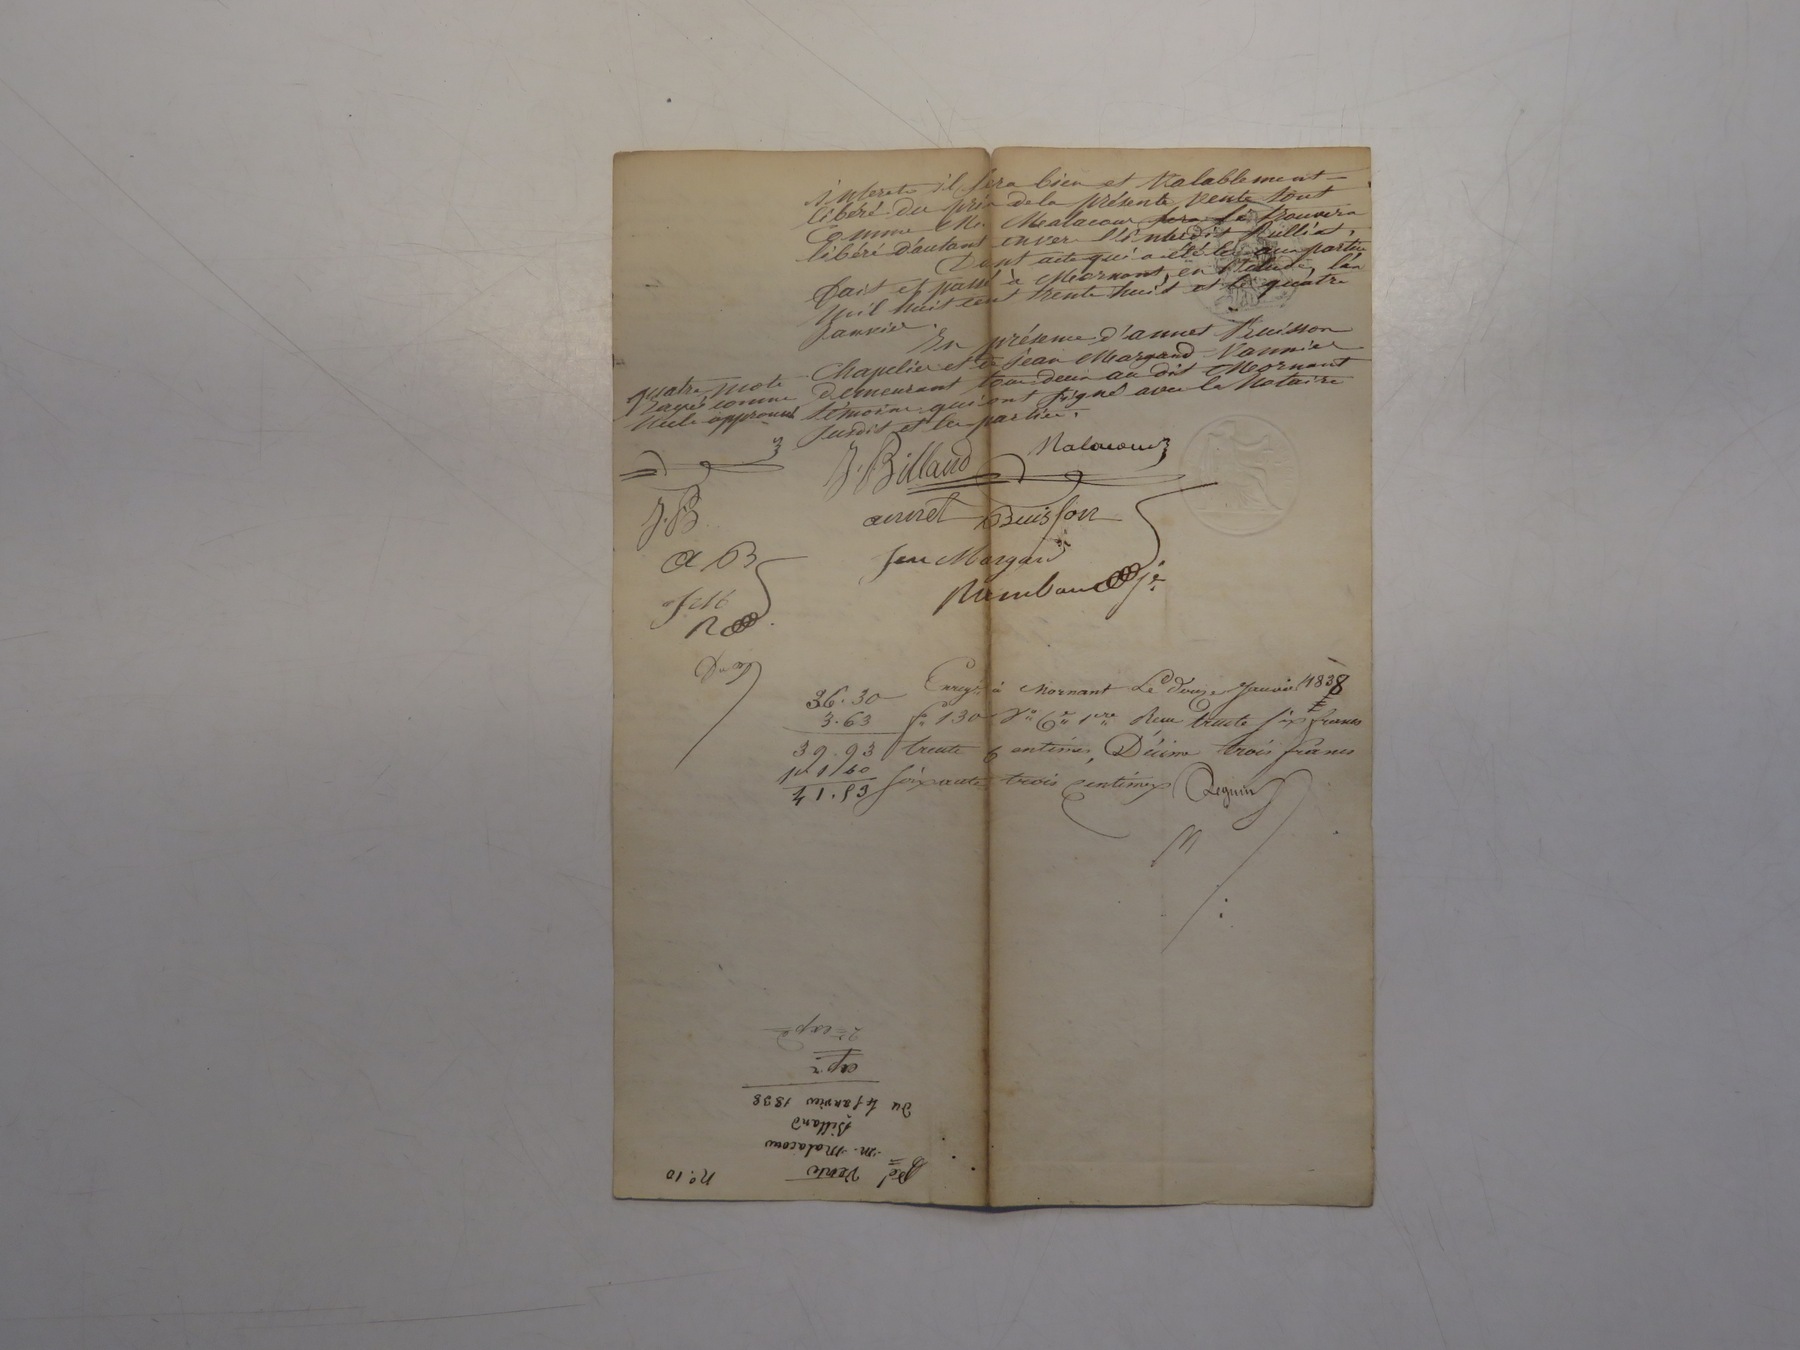 interets il sera bien et valablement
libéré du prix de la présente vente tout
comme Mr. Malacour se trouvera
libéré d'autant envers le susdit Rulliat,
Dont acte qui a été lu aux parties
fait et passé à Mornant, en l'étude, l'an
mil huit cent trente huit et le quatre
Janvier.
En présence d'annet Buisson
Chapelier et de jean Margand Vannier
demeurant tous deux au dit Mornant
témoins qui ont signé avec le Notaire
susdit et les parties.
quatre mots
rayés comme
nuls approuvés
J. Billaud
Malacour
annet Buisson
Jean Margand
J. B
a B
j M
R
Enreg. à Mornant Le douze Janvier 1838
fo 130 Vo Ce 1re Reçu trente six francs
trente Centimes, Décime trois francs
soixante trois Centimes
36.30
3.63
39.93
1.60
41.53
no. 10
Vente
m. Malacour
Billaud
du 4 Janvier 1838
2e exp